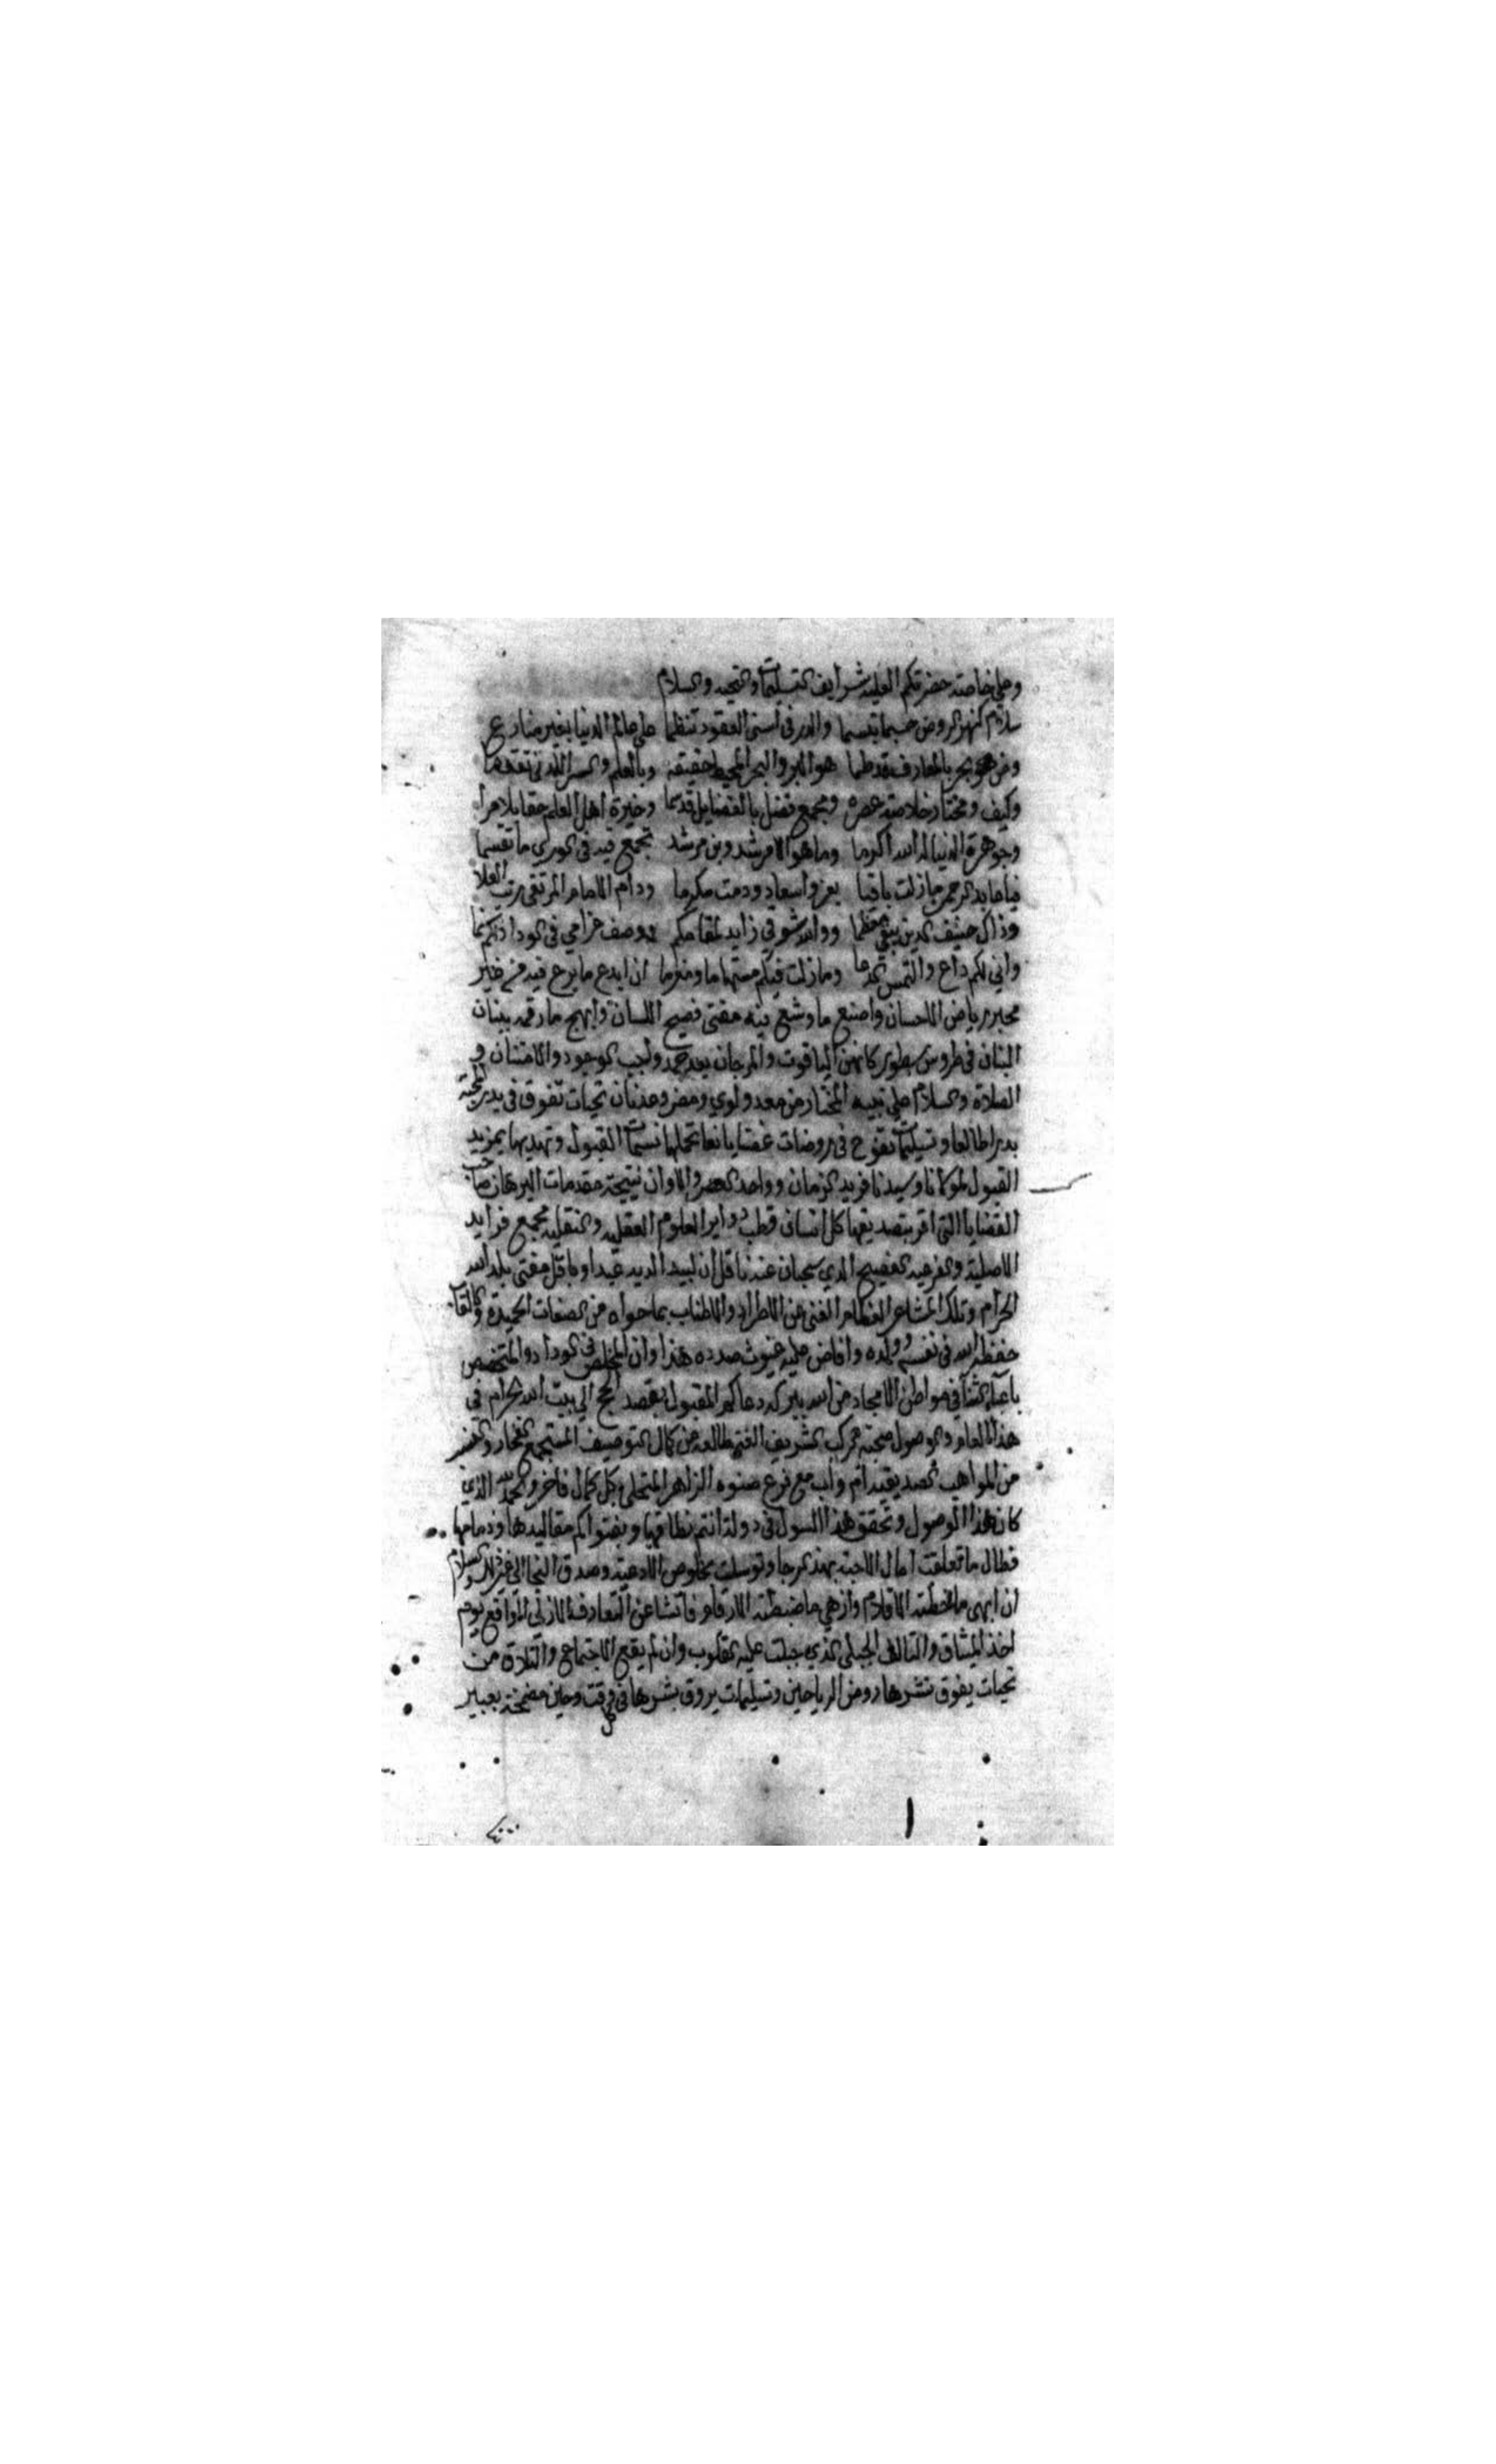 وعلي خاصة حضرتكم العلية شرايف التسليمات والتحيه والسلام
سلام كنهر الروض حسما تبسما والدر في اسنى العقود تنظما علي عالم الدنيا بغير منازع
ومن هو بحر بالمعارف قد طما هو البر والبحر المحيط حقيقة وبالعلم والسر اللدني تفقها
وكيف ومختار خلاصة عصره ومجمع فضل بالفضايل قد سما وخيرة اهل العلم حقا بلا مرا
وجوهرة الدنيا له الله اكرما وما هو الا مرشد وبن مرشد تجمع فيه في الوري ما تقسما
فيا عابد الرحمن ما زلت باقيا بعز واسعاد ودمت مكرما ودام الامام المرتقى رتب العلا
وذاك حنيف الدين يبقى معظما ووالله شوقي زايد لمقامكم ووصف غرامي في الوداد لكم نما
واني لكم داع والتمس الدعا وما زلت فيكم مستهاما ومغرما ان ابدع ما يرع فيه من خير
محبر رياض الاحسان واصنع ما وشع بنه مفتى فصيح اللسان وابهج ما رقمه ببنان
البنان في طروس سطور كانهن الياقوت والمرجان بعد حمد واجب الوجود والامتنان و
الصلاة والسلام علي نبيه المختار من معد ولوي ومضر وعدنان تحيات تفوق في يدير المحبة
بدرا طالعا وتسليمات تفوح في روضات غضا يانعا تحملها نسمات القبول وتهديها بمزيد
القبول لمولانا وسيدنا فريد الزمان وواحد العصر والاوان نتيجة مقدمات البرهان صاحب
القضايا التي اقر بتصديقها كل انسان قطب دواير العلوم العقليه والنقليه مجمع فرايد
الاصلية والفرعيه الفصيح الذي سحبان عندنا قل ان لبيد الديه عيدا وباقل مفتى بلد الله
الحرام وتلك المشاعر العظام الغني عن الاطراد والاطناب بما حواه من الصفات الحميدة والالقاب
حفظه الله في نفسه وولده وافاض عليه غيوث مدده هذا وان المخلص في الوداد والمتخصص
باعباء الثنا في مواطن الامجاد من الله ببركة دعاكم المقبول بقصد الحج الي بيت الله الحرام في
هذا العام والوصول صحبة مركب الشريف الفتح طالعه من كمال التوصيف المستجمع الفخار والفخر
من المواهب تصديقه ام واب مع فرع صنوه الزاهر المتحلي بكل كمال فاخر والحمد لله الذي
كان هذا الوصول وتحقق هذا السول في دولة انتم نظامها وبفتواكم مقاليدها وزمامها
فطال ما تعلقت امال الاحبة بهذه الرجا وتوسلت بخلوص الادعية وصدق التجا الي غير ذلك والسلام
ان ابهى ما خطته الاقلام وازهي ما ضبطته الارقام فانشا عن التعارف الازلي الواقع يوم
اخذ الميثاق والتالف الجبلي الذي جبلت عليه القلوب وان لم يقع الاجتماع والتلاقة من
تحيات يفوق نشرها روض الرياحين وتسليمات يروق بشرها في كل وقت وحين مضمخة بعبير